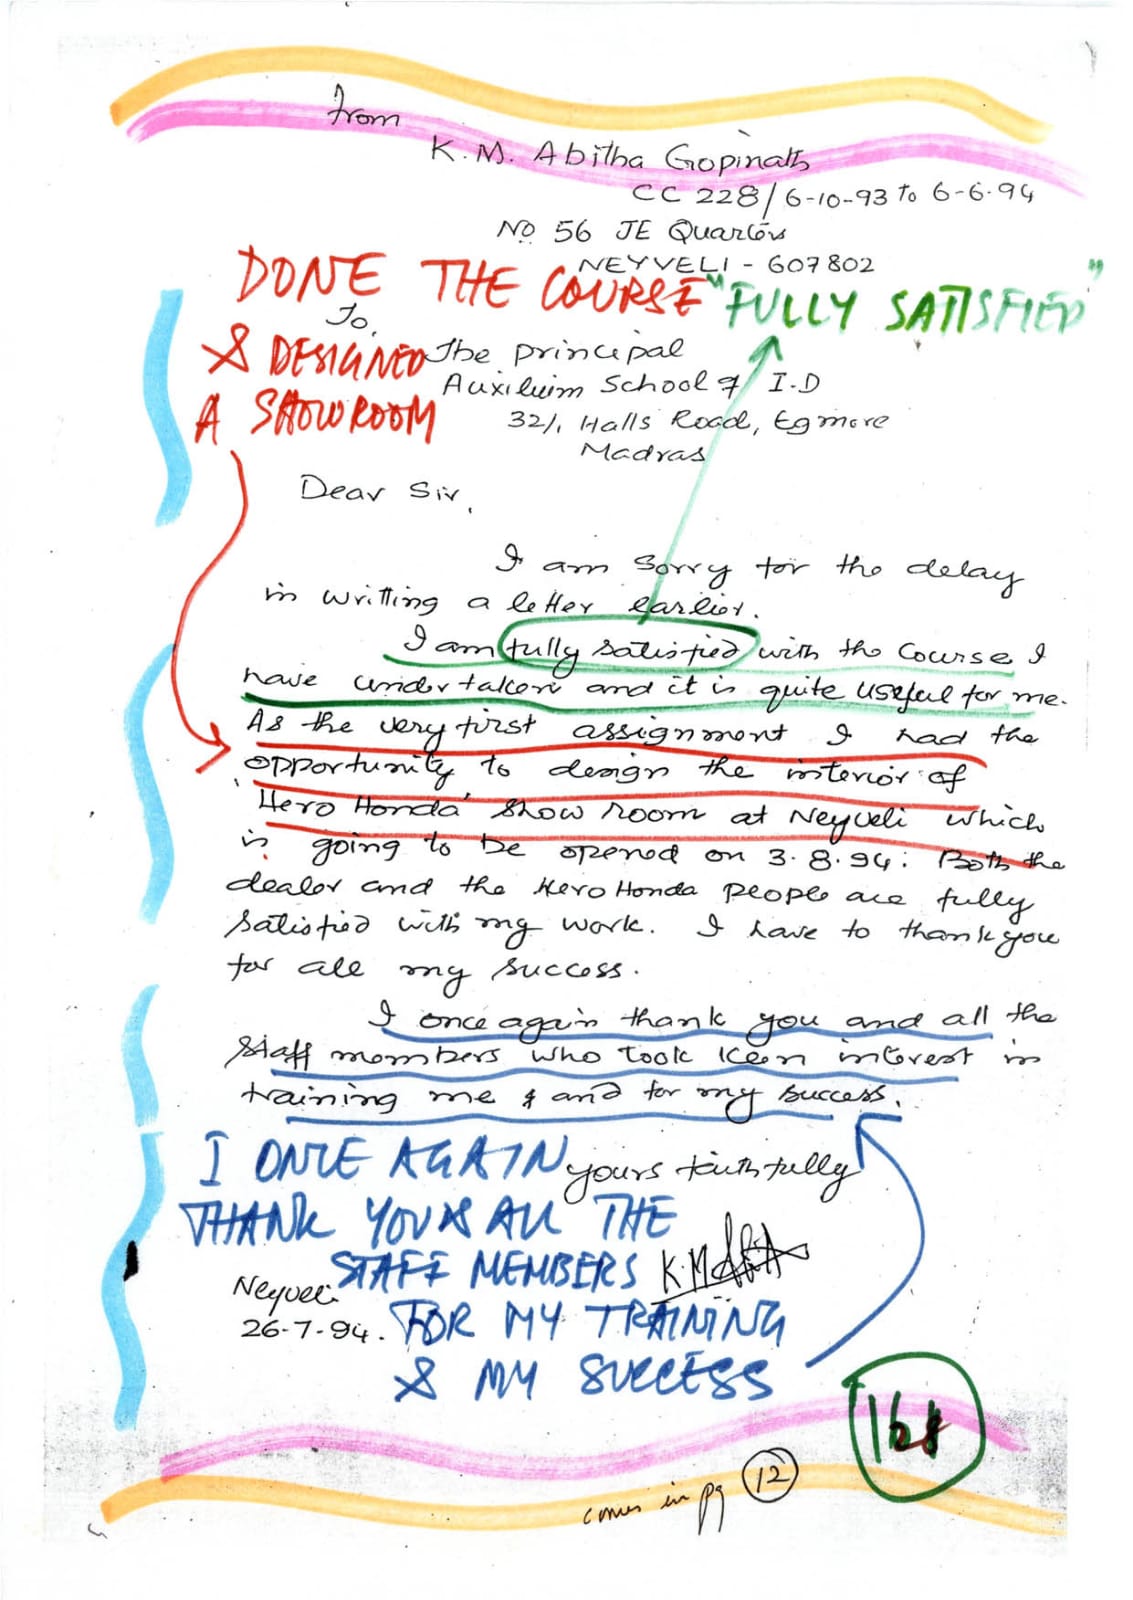 from
K. M. Abitha Gopinath
CC 228/6-10-93 to 6-6-94
No 56 JE Quarters
NEYVELI - 607802
DONE THE COURSE "FULLY SATISFIED"
To,
& DESIGNED
A SHOWROOM
The principal
Auxilium School of I.D
32/1, Halls Road, Egmore
Madras
Dear Sir,
I am sorry for the delay
in writting a letter earlier.
I am fully satisfied with the Course I
have undertaken and it is quite useful for me.
As the very first assignment I had the
opportunity to design the interior of
'Hero Honda' show room at Neyveli which
is going to be opened on 3.8.94. Both the
dealer and the Hero Honda people are fully
satisfied with my work. I have to thank you
for all my success.
I once again thank you and all the
staff members who took keen interest in
training me & and for my success.
yours faithfully
I ONCE AGAIN
THANK YOU & ALL THE
STAFF MEMBERS
FOR MY TRAINING
& MY SUCCESS
Neyveli
26-7-94.
comes in pg 12